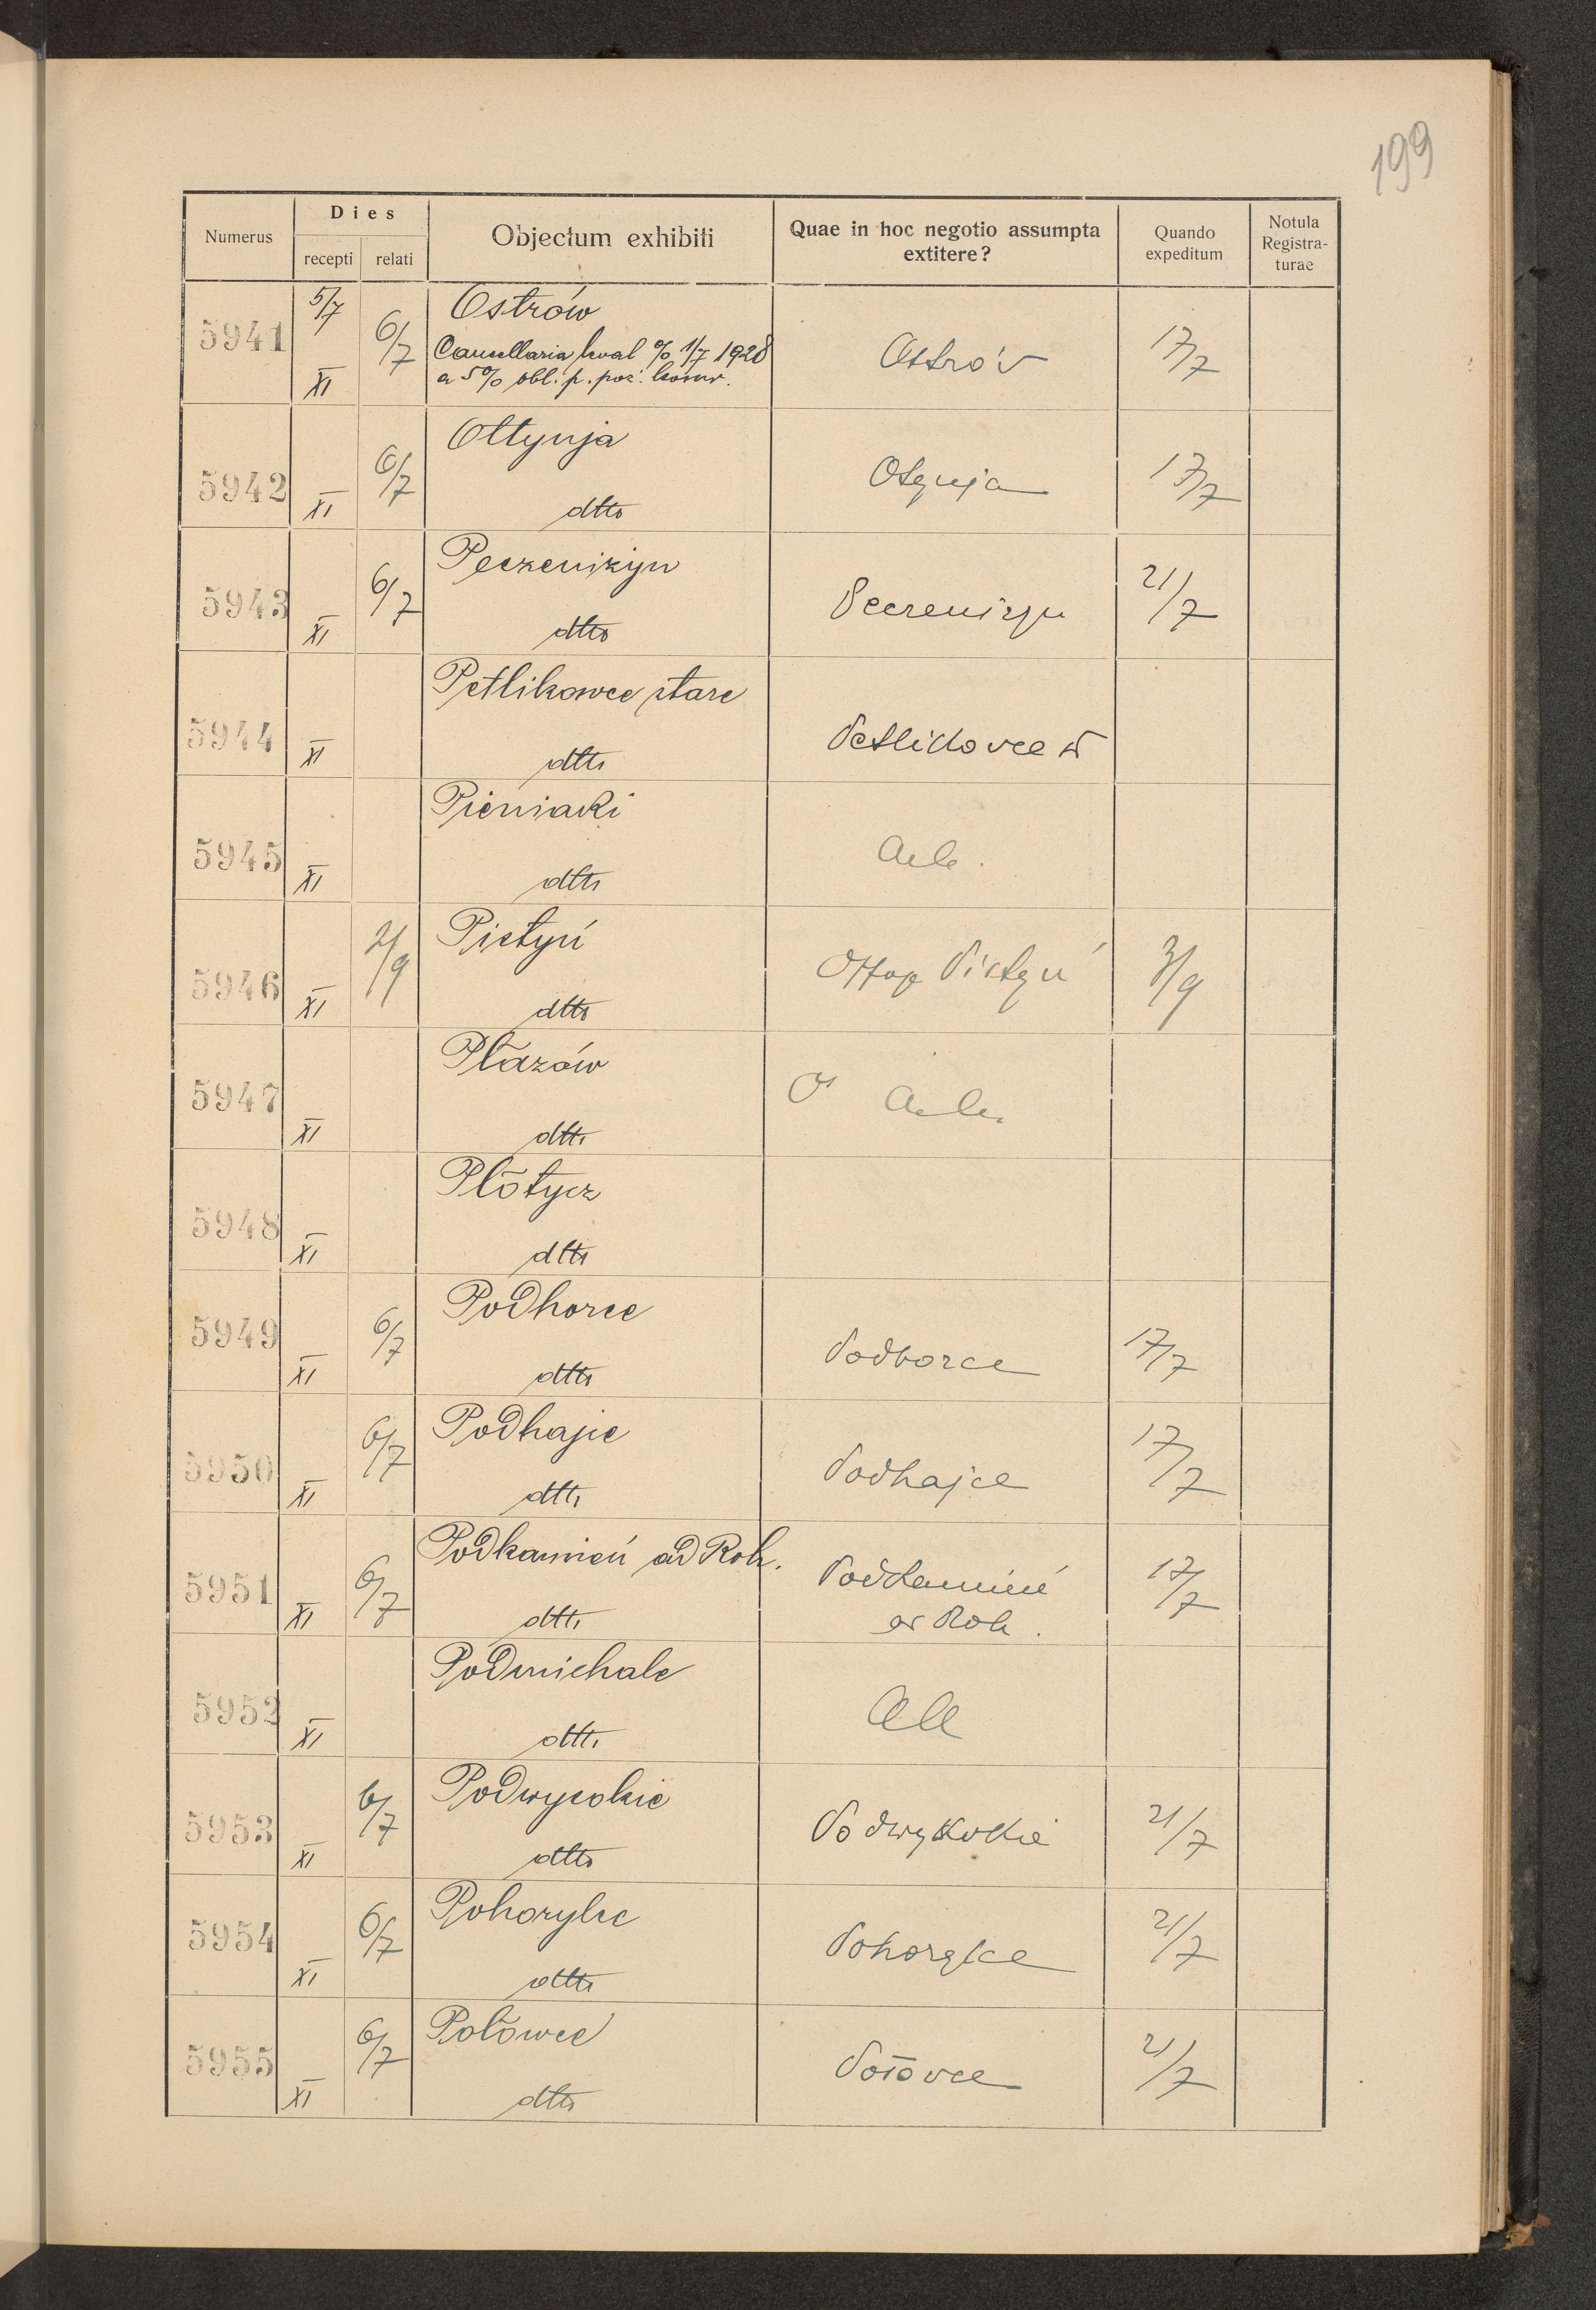 199
Numerus
Dies
recepti relati
Objectum exhibiti
Quae in hoc negotio assumpta
extitere?
Quando
expeditum
Notula
Registra-
turae
5941 5/7 XI 6/7 Ostrów
Cancellaria kwal % 1/7 1928
a 5% obl. p. poż. konw.
Ostróv 17/7
5942 XI 6/7 Ottynja
dtto
Otynja 17/7
5943 XI 6/7 Peczeniżyn
dtto
Peczeniżyn 21/7
5944 XI Petlikowce stare
dtto
Petlikovce st
5945 XI Pieniaki
dtto
5946 XI 2/9 Pistyń
dtto
Pistyń 3/9
5947 XI Płazów
dtto
5948 XI Płotycz
dtto
5949 XI 6/7 Podhorce
dtto
Podhorce 17/7
5950 XI 6/7 Podhajce
dtto
Podhajce 17/7
5951 XI 6/7 Podkamień ad Roh.
dtto
Podkamień
ad Roh. 17/7
5952 XI Podmichale
dtto
5953 XI 6/7 Podwysokie
dtto
Podwysokie 21/7
5954 XI 6/7 Pohorylce
dtto
Pohorylce 21/7
5955 XI 6/7 Połowce
dtto
Połovce 21/7